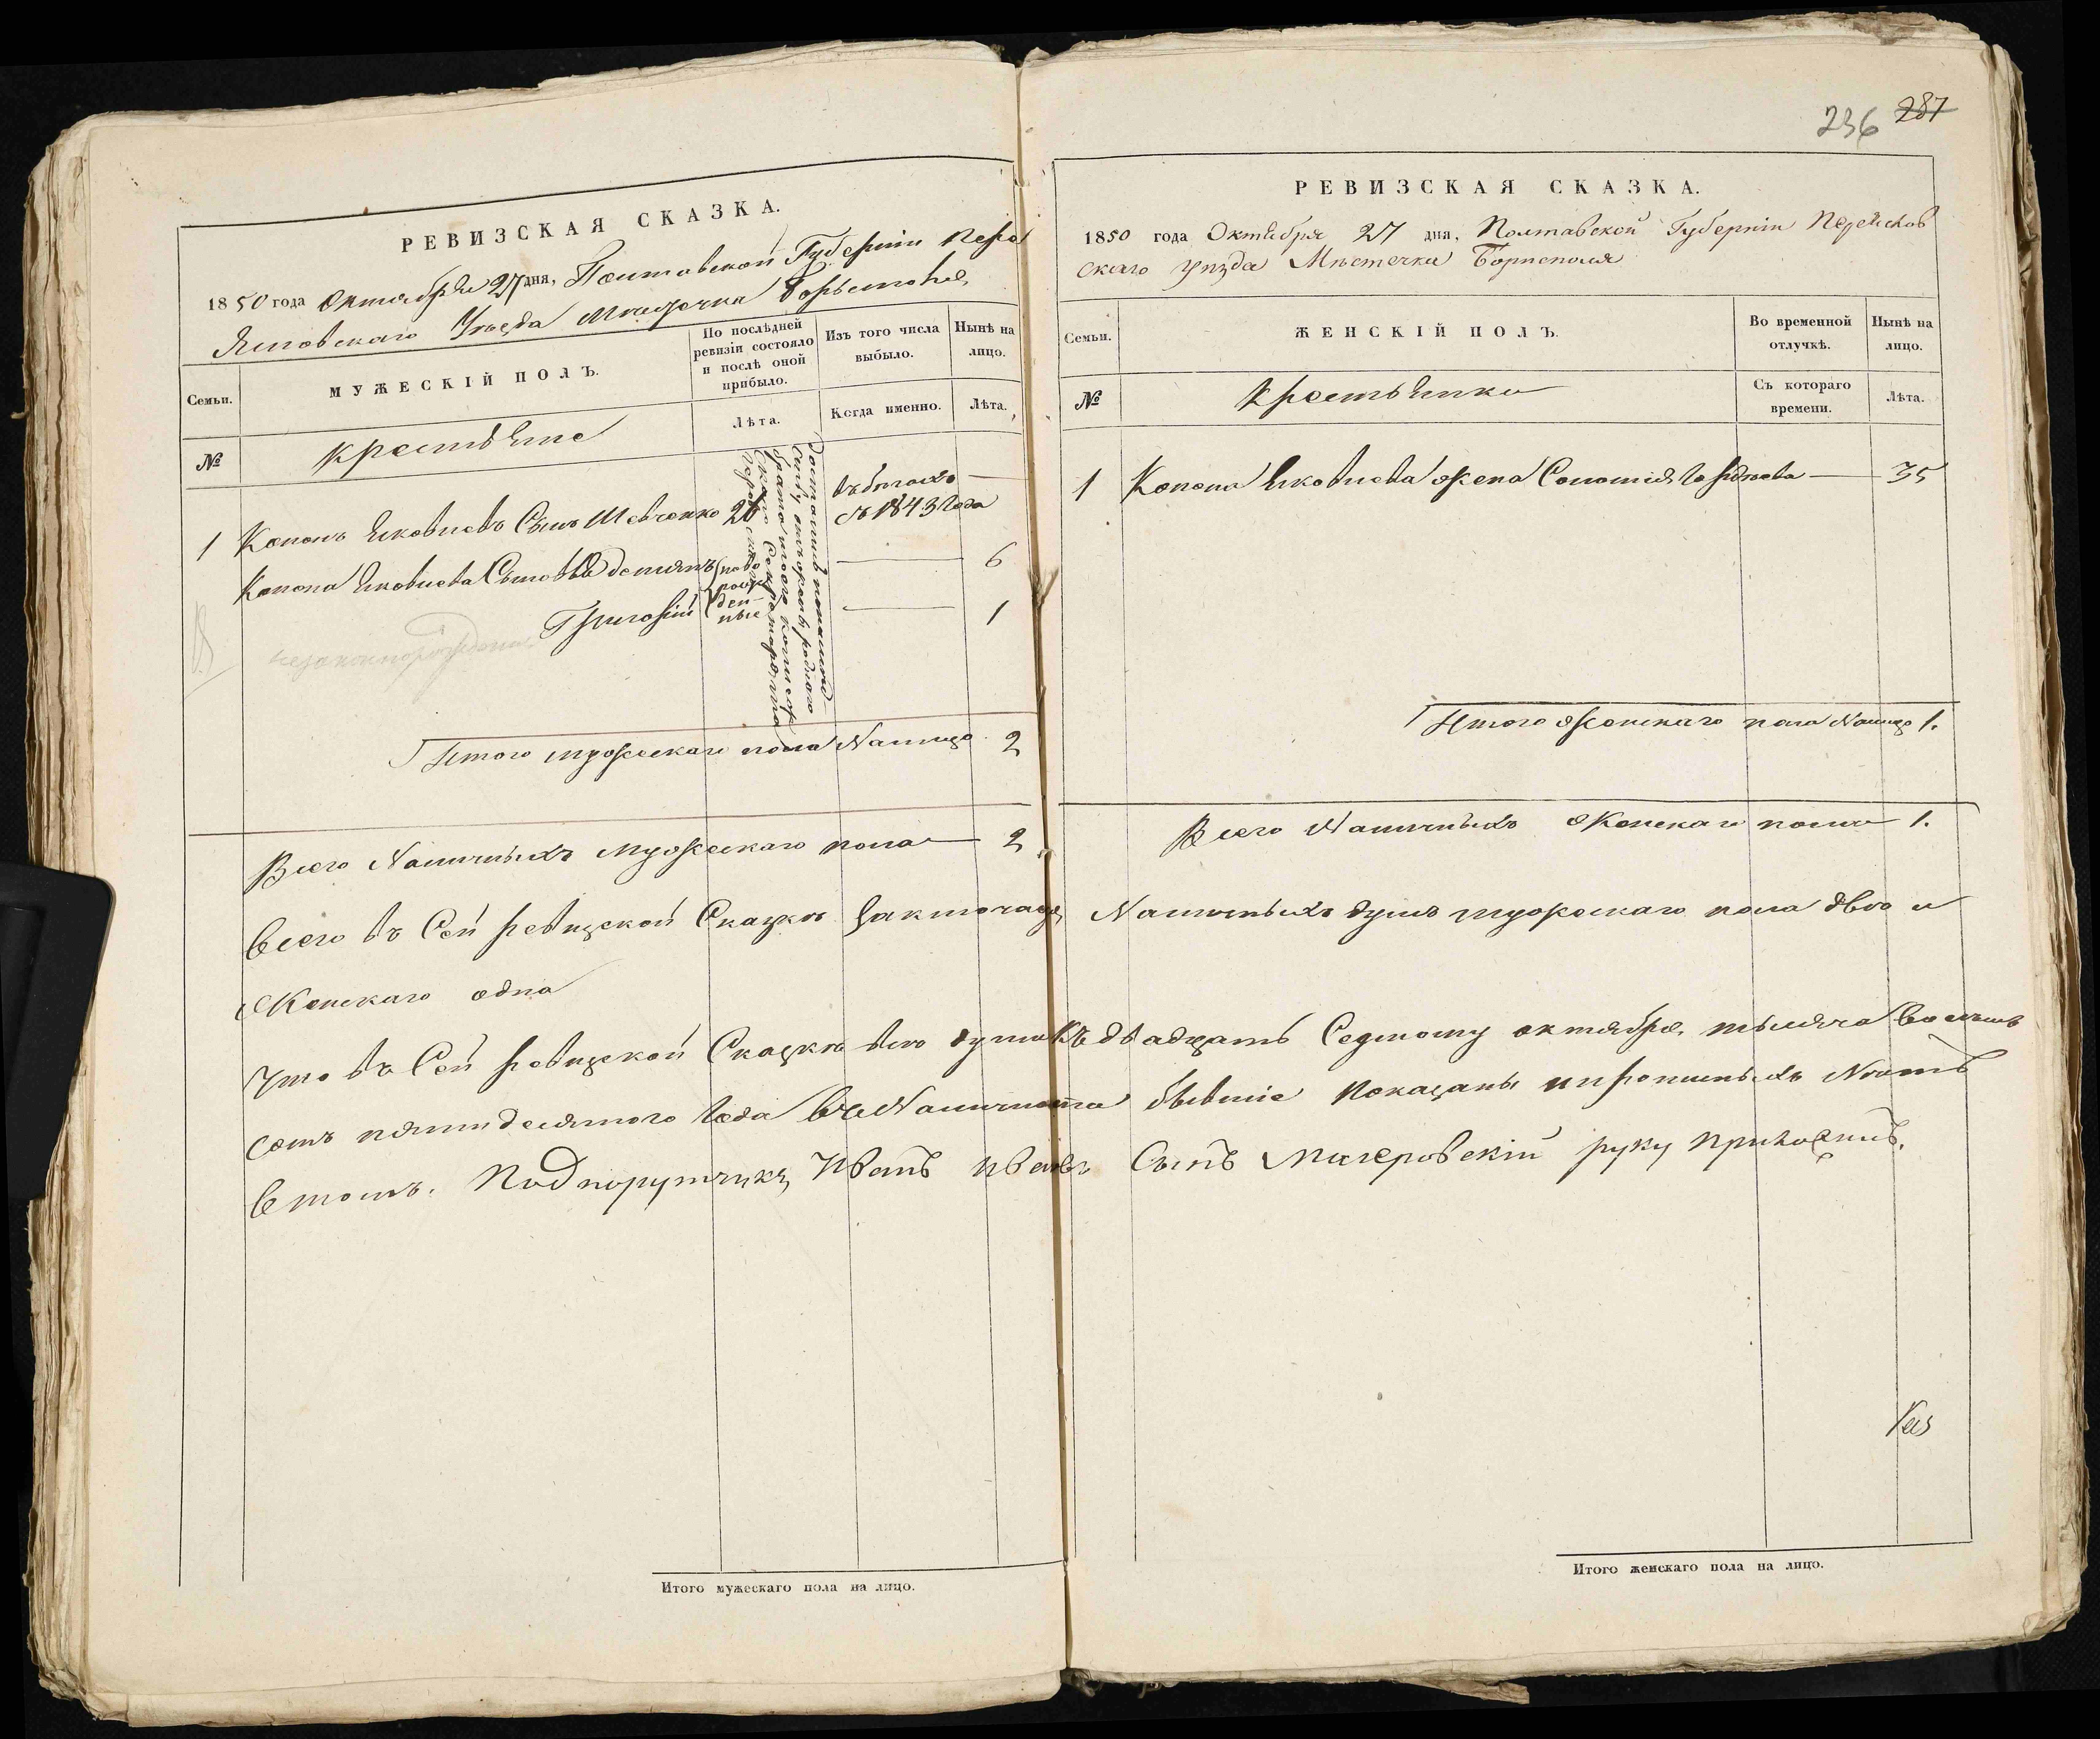 РЕВИЗСКАЯ СКАЗКА.
1850 года Октября 27 дня, Полтавской Губерніи Пере
Яславскаго Уезда Местечка Борисполя
Семьи.
МУЖЕСКІЙ ПОЛЪ.
По послѣдней ревизіи состояло и послѣ оной прибыло.
Изъ того числа выбыло.
Нынѣ на лицо.
№
крестьяне
Лѣта.
Когда именно.
Лѣта.
1 Кононъ Яковлевъ Сынъ Шевченко 26 въ бегахъ —
съ 1843 года
Конона Яковлева Сыновья Демьянъ ново — 6
Григорій рожденные — 1
незаконнорожденн
Доставшійся
отъ роднаго
брата
Итого мужескаго пола Налицо 2
Всего Наличныхъ мужескаго пола — 2
236 287
РЕВИЗСКАЯ СКАЗКА.
1850 года Октября 27 дня, Полтавской Губерніи Переяслов
скаго уѣзда Мѣстечка Борисполя
Семьи.
ЖЕНСКІЙ ПОЛЪ.
Во временной отлучкѣ.
Нынѣ на лицо.
№
крестьянки
Съ котораго времени.
Лѣта.
1 Конона Яковлева жена Соломія — 35
Итого женскаго пола Налицо 1.
Всего Наличныхъ Женскаго пола 1.
Всего въ Сей ревизской Сказке заключается Наличныхъ душъ мужескаго пола двѣ и
Женскаго одна
Что въ Сей ревизской Сказке все души Къ двадцать Седмому октября, тысяча Восемь
сотъ пятидесятого года Въ Наличности бывшіе показаны и прописныхъ Нетъ
Втомъ. Подпорутчикъ Иванъ Ивановъ Сынъ Магеровскій руку приложилъ.
Итого мужескаго пола на лицо.
Итого женскаго пола на лицо.